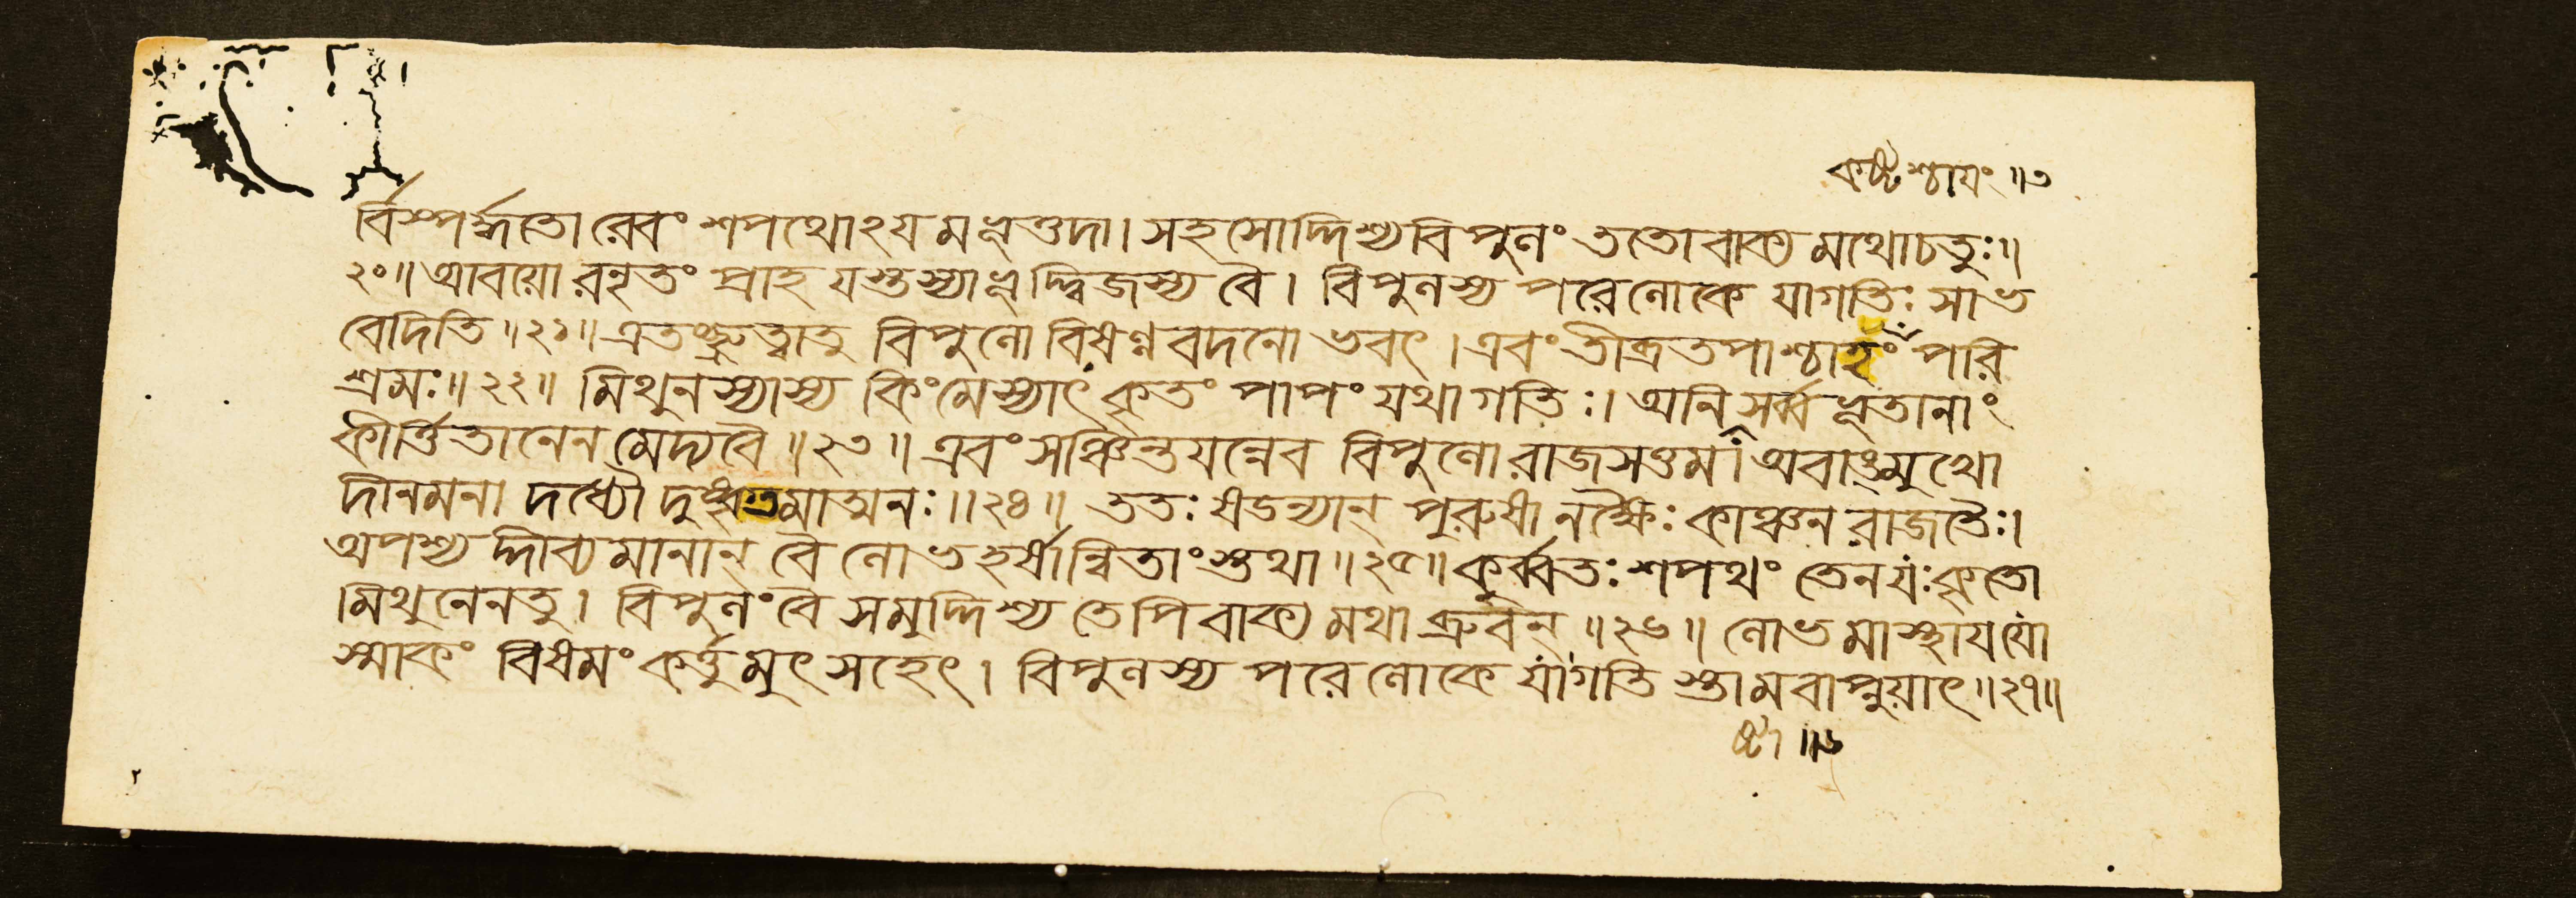 কষ্টশ্চায়ং ॥৩
র্বিস্পর্দ্ধতোরেবং শপথোঽয়মভূত্তদা। সহসোদ্দিশ্য বিপুলং ততো বাক্যমথোচতুঃ॥
২০॥ আবয়োরনৃতং প্রাহ যস্তস্যাভূদ্দ্বিজস্য বৈ। বিপুলস্য পরে লোকে যা গতিঃ সা ভ
বেদিতি॥২১॥ এতচ্ছ্রুত্বা তু বিপুলো বিষণ্ণবদনোভবৎ। এবং তীব্রতপাশ্চাহং পরি
শ্রমঃ॥২২॥ মিথুনস্যাস্য কিং মে স্যাৎ কৃতং পাপং যথা গতিঃ। অনি সর্ব্বভূতানাং
কীর্ত্তিতানেন মেদ্য বৈ॥২৩॥ এবং সঞ্চিন্তয়ন্নেব বিপুলো রাজসত্তম। অবাঙ্মুখো
দীনমনা দধ্যৌ দুষ্কৃতমাত্মনঃ॥২৪॥ ততঃ ষডন্যান্ পুরুষানক্ষৈঃ কাঞ্চনরাজতৈঃ।
অপশ্যদ্দীব্যমানান্ বৈ লোভহর্ষান্বিতাংস্তথা॥২৫॥ কুর্ব্বতঃ শপথং তেন যঃ কৃতো
মিথুনেন তু। বিপুলং বৈ সমুদ্দিশ্য তেপি বাক্যমথাব্রুবন্॥২৬॥ লোভমাস্থায় যো
স্মাকং বিষমং কর্ত্তুমুৎসহেৎ। বিপুলস্য পরে লোকে যা গতিস্তামবাপ্নুয়াৎ॥২৭॥